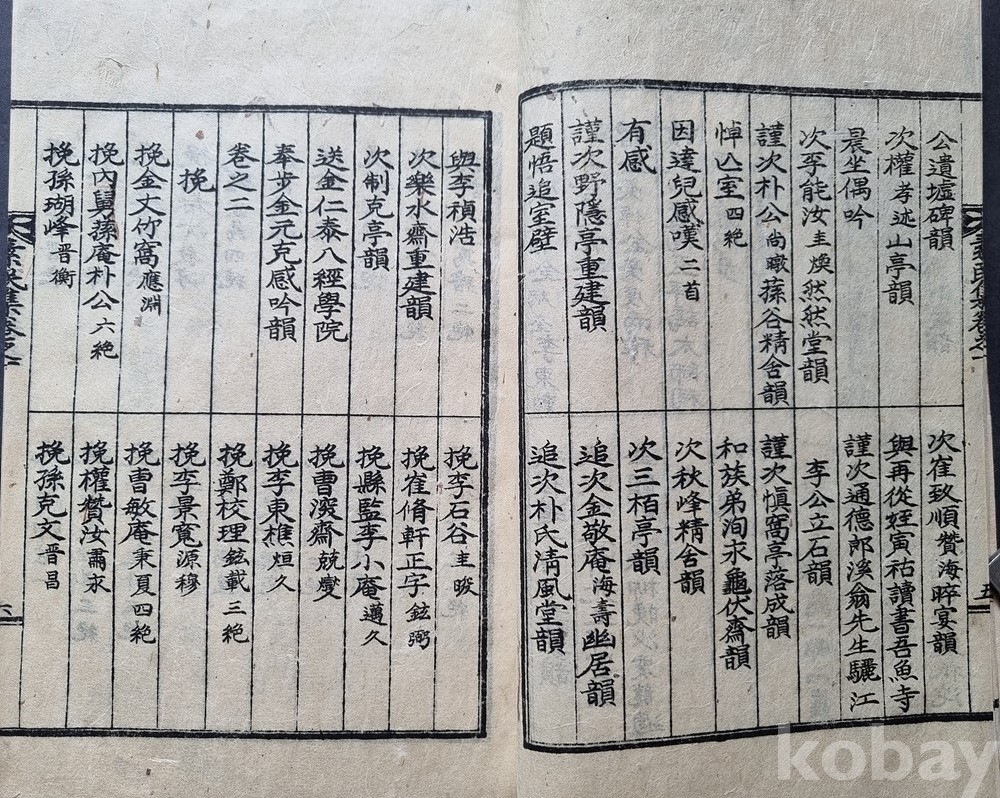 公遺墟碑韻
次權孝述山亭韻
晨坐偶吟
次李能汝圭煥然然堂韻
謹次朴公尚暾蓀谷精舍韻
悼亾室四絶
因達兒感嘆二首
有感
謹次野隱亭重建韻
題悟追室壁
次崔致順贊海晬宴韻
與再從姪寅祐讀書吾魚寺
謹次通德郎溪翁先生驪江
李公立石韻
謹次愼窩亭落成韻
和族弟洵永龜伏齋韻
次秋峰精舍韻
次三栢亭韻
追次金敬庵海壽幽居韻
追次朴氏淸風堂韻
五
與李禎浩
次樂水齋重建韻
次制克亭韻
送金仁泰八經學院
奉步金元克感吟韻
卷之二
挽
挽金文竹窩應淵
挽內舅蓀庵朴公六絶
挽孫瑚峰晋衡
挽李石谷圭晙
挽崔脩軒正字鉉弼
挽縣監李小庵邁久
挽曺深齋兢燮
挽李東樵烜久
挽鄭校理鉉載三絶
挽李景寬源穆
挽曺敏庵秉夏四絶
挽權贊汝肅永
挽孫克文晋昌
六
kobay